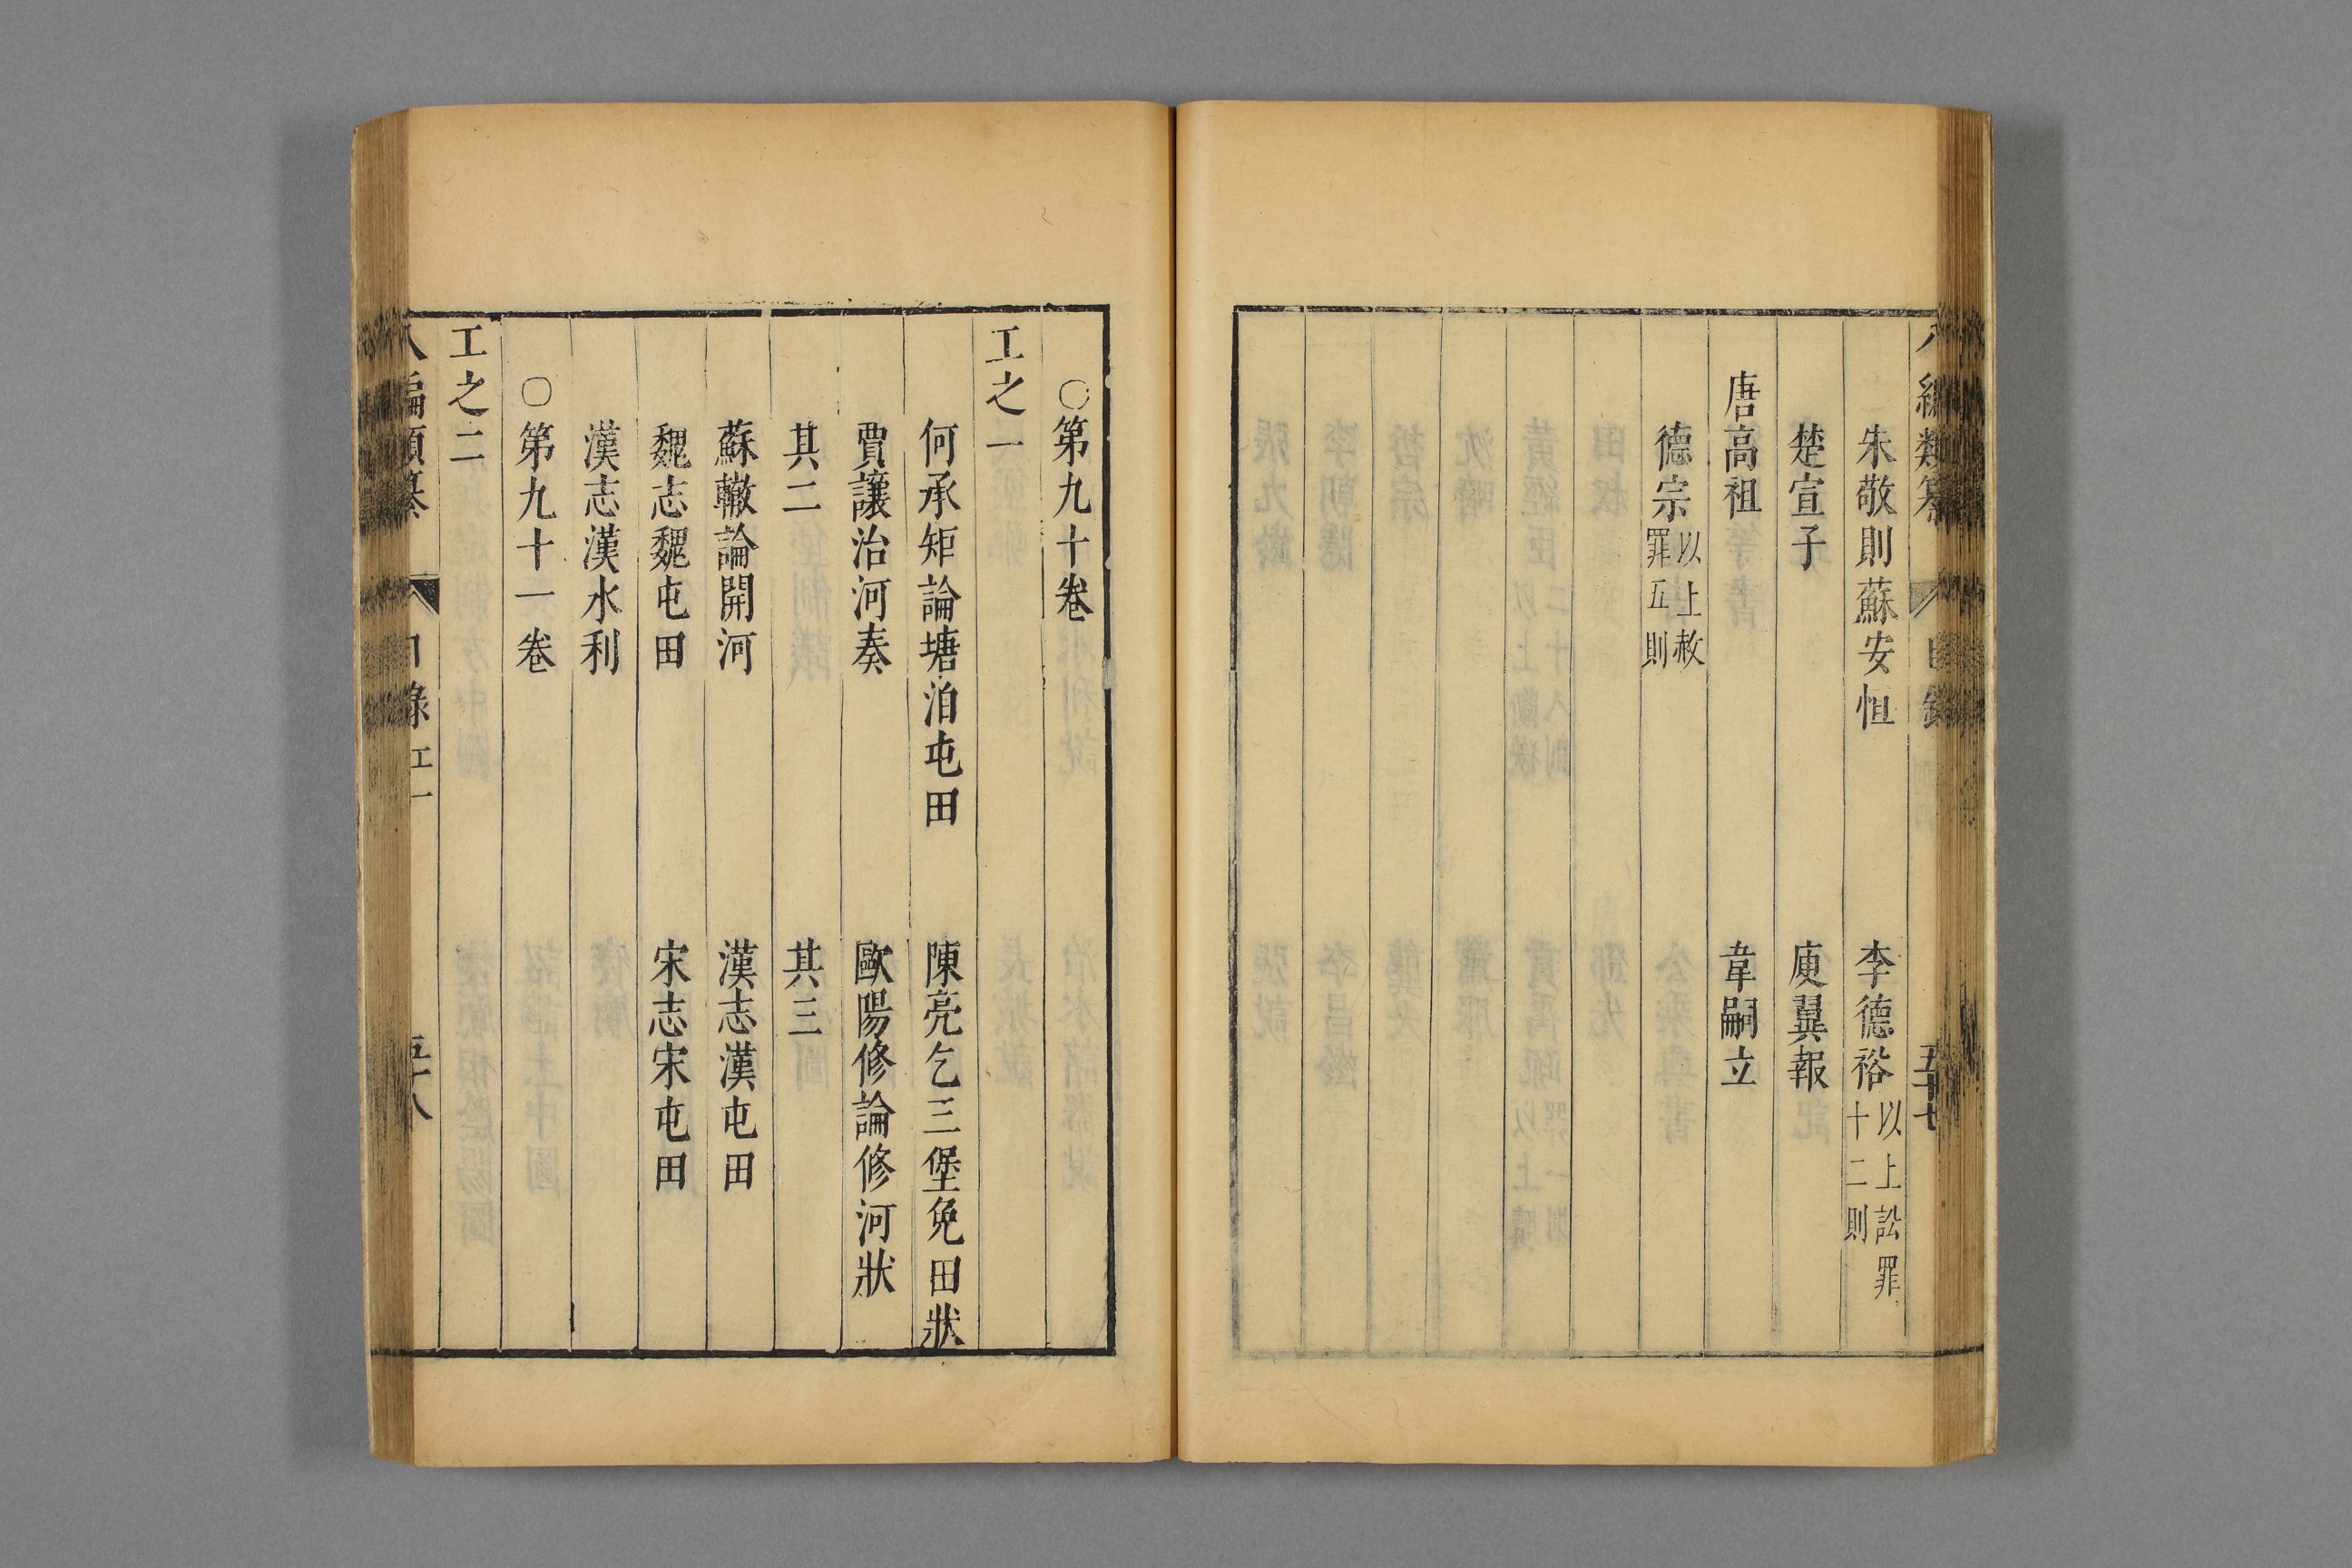 八編類纂 目錄 五十七
朱敬則蘇安恒 李德裕 以上訟罪十二則
楚宣子 庾翼報
唐高祖 韋嗣立
德宗 以上赦罪五則
○第九十卷
工之一
何承矩論塘泊屯田 陳亮乞三堡免田狀
賈讓治河奏 歐陽修論修河狀
其二 其三
蘇轍論開河 漢志漢屯田
魏志魏屯田 宋志宋屯田
漢志漢水利
○第九十一卷
工之二
八編類纂 目錄 工一 五十八